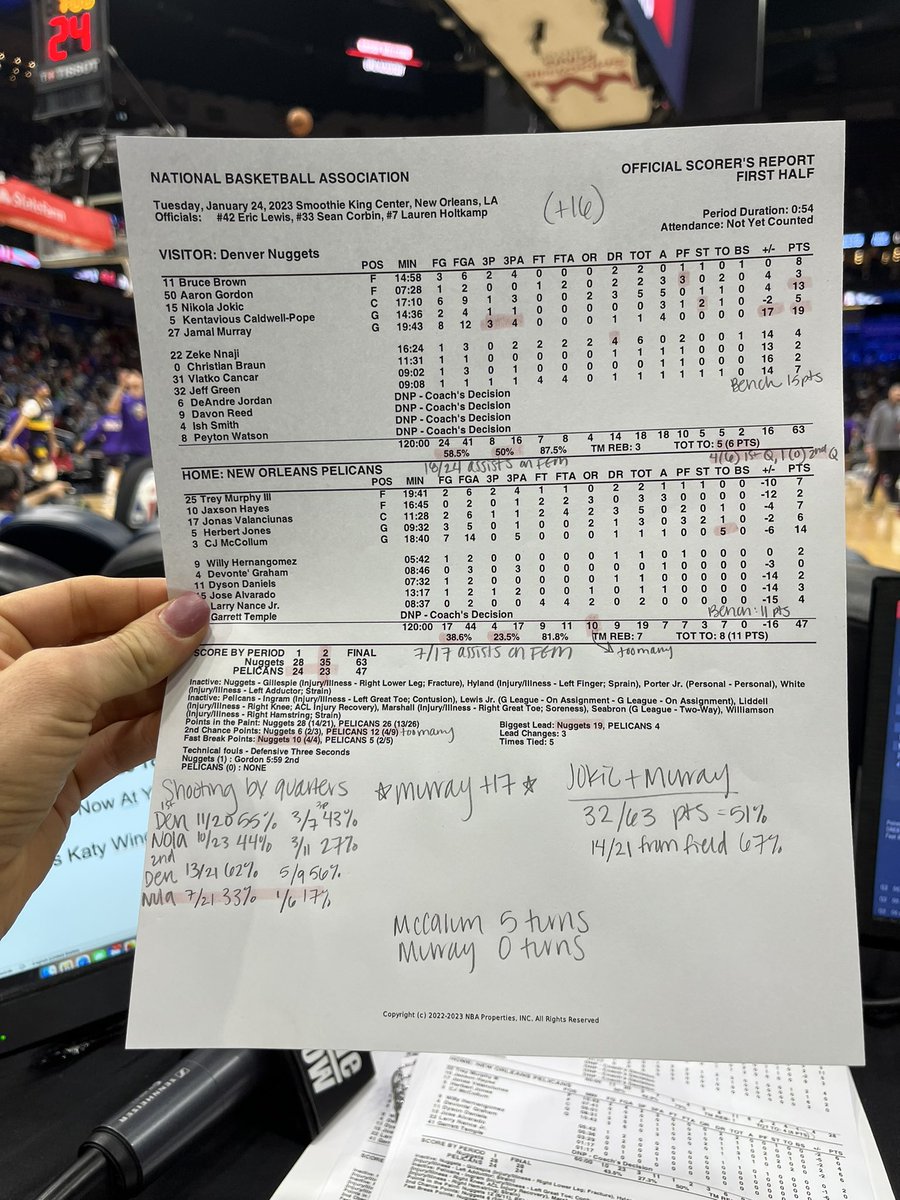 24
TISSOT
StateFarm
NATIONAL BASKETBALL ASSOCIATION
OFFICIAL SCORER'S REPORT
FIRST HALF
Tuesday, January 24, 2023 Smoothie King Center, New Orleans, LA
Officials: #42 Eric Lewis, #33 Sean Corbin, #7 Lauren Holtkamp
(+16)
Period Duration: 0:54
Attendance: Not Yet Counted
VISITOR: Denver Nuggets
POS MIN FG FGA 3P 3PA FT FTA OR DR TOT A PF ST TO BS +/- PTS
11 Bruce Brown F 14:58 3 6 2 4 0 0 0 2 2 0 1 1 0 1 0 8
50 Aaron Gordon F 07:28 1 2 0 0 1 2 0 2 2 3 3 0 2 0 4 3
15 Nikola Jokic C 17:10 6 9 1 3 0 0 2 3 5 5 0 1 0 0 4 13
5 Kentavious Caldwell-Pope G 14:36 2 4 1 1 0 0 0 0 0 3 1 2 1 0 -2 5
27 Jamal Murray G 19:43 8 12 3 4 0 0 0 1 1 4 0 0 0 0 17 19
22 Zeke Nnaji 16:24 1 3 0 2 2 2 2 4 6 0 2 0 0 1 14 4
0 Christian Braun 11:31 1 1 0 0 0 0 0 1 1 1 1 0 0 0 13 2
31 Vlatko Cancar 09:02 1 3 0 1 0 0 0 0 0 1 1 0 0 0 16 2
32 Jeff Green 09:08 1 1 1 1 4 4 0 1 1 1 1 1 0 0 14 7
6 DeAndre Jordan DNP - Coach's Decision
Bench 15 pts
9 Davon Reed DNP - Coach's Decision
4 Ish Smith DNP - Coach's Decision
8 Peyton Watson DNP - Coach's Decision
120:00 24 41 8 16 7 8 4 14 18 18 10 5 5 2 16 63
58.5% 50% 87.5% TM REB: 3 TOT TO: 5 (6 PTS)
18/24 assists on FGM
4(6) 1st Q, 1(0) 2nd Q
HOME: NEW ORLEANS PELICANS
POS MIN FG FGA 3P 3PA FT FTA OR DR TOT A PF ST TO BS +/- PTS
25 Trey Murphy III F 19:41 2 6 2 4 1 1 0 2 2 1 1 1 0 0 -10 7
10 Jaxson Hayes F 16:45 0 2 0 1 2 2 3 0 3 3 0 0 0 0 -12 2
17 Jonas Valanciunas C 11:28 2 6 1 1 2 4 2 3 5 0 0 0 2 0 -4 7
5 Herbert Jones G 09:32 3 5 0 1 0 0 2 1 3 0 3 2 1 0 -2 6
3 CJ McCollum G 18:40 7 14 0 5 0 0 0 1 1 1 0 0 5 0 -6 14
9 Willy Hernangomez 05:42 1 2 0 0 0 0 0 1 1 0 1 0 0 0 0 2
4 Devonte' Graham 08:46 0 3 0 3 0 0 0 0 0 1 0 0 0 0 -3 0
11 Dyson Daniels 07:32 1 2 0 0 0 0 0 1 1 0 0 0 0 0 -14 2
15 Jose Alvarado 13:17 1 2 1 2 0 0 1 0 1 1 1 0 0 0 -14 3
Larry Nance Jr. 08:37 0 2 0 0 4 4 2 0 2 0 1 0 0 0 -15 4
Garrett Temple DNP - Coach's Decision
Bench: 11 pts
120:00 17 44 4 17 9 11 10 9 19 7 7 3 7 0 -16 47
38.6% 23.5% 81.8% TM REB: 7 TOT TO: 8 (11 PTS)
7/17 assists on FGM
too many
SCORE BY PERIOD 1 2 FINAL
Nuggets 28 35 63
PELICANS 24 23 47
Inactive: Nuggets - Gillespie (Injury/Illness - Right Lower Leg; Fracture), Hyland (Injury/Illness - Left Finger; Sprain), Porter Jr. (Personal - Personal), White
(Injury/Illness - Left Adductor; Strain)
Inactive: Pelicans - Ingram (Injury/Illness - Left Great Toe; Contusion), Lewis Jr. (G League - On Assignment - G League - On Assignment), Liddell
(Injury/Illness - Right Knee; ACL Injury Recovery), Marshall (Injury/Illness - Right Great Toe; Soreness), Seabron (G League - Two-Way), Williamson
(Injury/Illness - Right Hamstring; Strain)
Points in the Paint: Nuggets 28 (14/21), PELICANS 26 (13/26)
2nd Chance Points: Nuggets 6 (2/3), PELICANS 12 (4/9) too many
Fast Break Points: Nuggets 10 (4/4), PELICANS 5 (2/5)
Biggest Lead: Nuggets 19, PELICANS 4
Lead Changes: 3
Times Tied: 5
Technical fouls - Defensive Three Seconds
Nuggets (1) : Gordon 5:59 2nd
PELICANS (0) : NONE
Shooting by quarters
1st
3P
Den 11/20 55% 3/7 43%
Nola 10/23 44% 3/11 27%
2nd
Den 13/21 62% 5/9 56%
Nola 7/21 33% 1/6 17%
☆ Murray +17 ☆
Jokic + Murray
32/63 pts = 51%
14/21 from field 67%
McCallum 5 turns
Murray 0 turns
Copyright (c) 2022-2023 NBA Properties, INC. All Rights Reserved
Now At
Katy Win
SENNHEISER
HOME: NEW ORLEANS PELICANS
SCORE BY PERIOD 1 FINAL